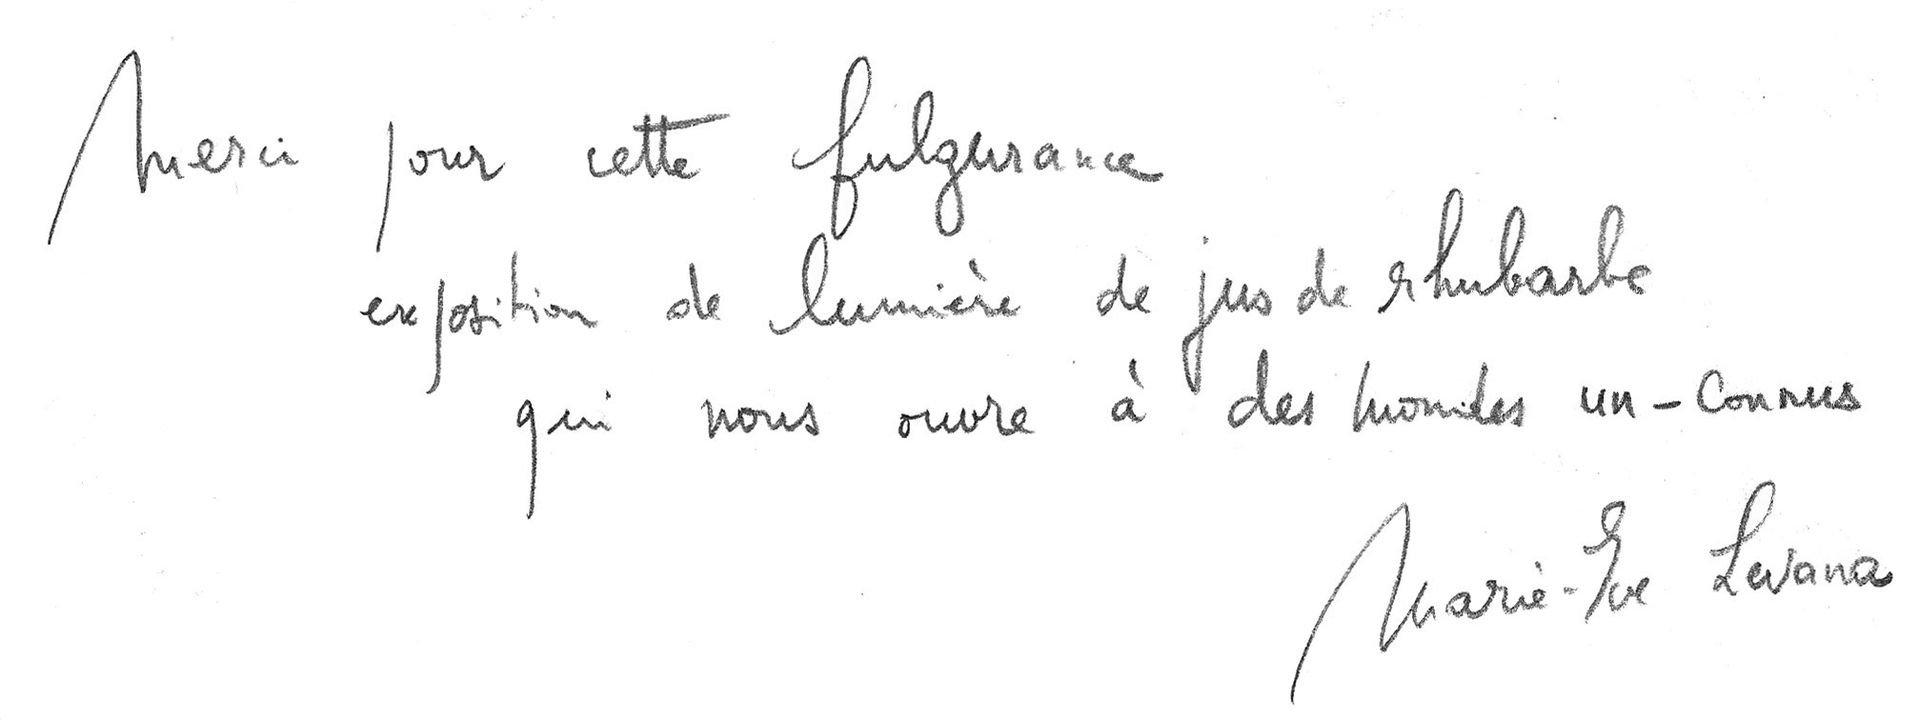 Merci pour cette fulgurance
exposition de lumière de jus de rhubarbe
qui nous ouvre à des mondes un-connus
Marie-Eve Levana